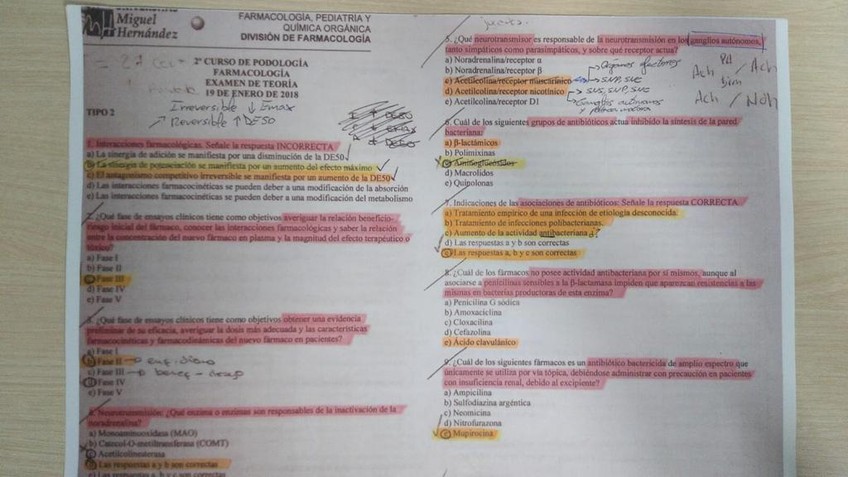 Miguel
Hernández
FARMACOLOGÍA, PEDIATRÍA Y
QUÍMICA ORGÁNICA
DIVISIÓN DE FARMACOLOGÍA
2º CURSO DE PODOLOGÍA
FARMACOLOGÍA
EXAMEN DE TEORÍA
19 DE ENERO DE 2018
TIPO 2
Irreversible ↓ Emax
↗ Reversible ↑ DE50
1. Interacciones farmacológicas. Señale la respuesta INCORRECTA
a) La sinergia de adición se manifiesta por una disminución de la DE50
b) La sinergia de potenciación se manifiesta por un aumento del efecto máximo
c) El antagonismo competitivo irreversible se manifiesta por un aumento de la DE50
d) Las interacciones farmacocinéticas se pueden deber a una modificación de la absorción
e) Las interacciones farmacocinéticas se pueden deber a una modificación del metabolismo
2. ¿Qué fase de ensayos clínicos tiene como objetivos averiguar la relación beneficio-
riesgo inicial del fármaco, conocer las interacciones farmacológicas y saber la relación
entre la concentración del nuevo fármaco en plasma y la magnitud del efecto terapéutico o
tóxico?
a) Fase I
b) Fase II
c) Fase III
d) Fase IV
e) Fase V
3. ¿Qué fase de ensayos clínicos tiene como objetivos obtener una evidencia
preliminar de su eficacia, averiguar la dosis más adecuada y las características
farmacocinéticas y farmacodinámicas del nuevo fármaco en pacientes?
a) Fase I
b) Fase II
c) Fase III
d) Fase IV
e) Fase V
4. Neurotransmisión: ¿Qué enzima o enzimas son responsables de la inactivación de la
noradrenalina?
a) Monoaminooxidasa (MAO)
b) Catecol-O-metiltransferasa (COMT)
c) Acetilcolinesterasa
d) Las respuestas a y b son correctas
e) Las respuestas a, b y c son correctas
5. ¿Qué neurotransmisor es responsable de la neurotransmisión en los ganglios autónomos,
tanto simpáticos como parasimpáticos, y sobre qué receptor actua?
a) Noradrenalina/receptor α
b) Noradrenalina/receptor β
c) Acetilcolina/receptor muscarínico
d) Acetilcolina/receptor nicotínico
e) Acetilcolina/receptor D1
Organos efectores
SNP, SNC
Ach / Ach
Ach / NAd
6. Cuál de los siguientes grupos de antibióticos actua inhibido la síntesis de la pared
bacteriana:
a) β-lactámicos
b) Polimixinas
c) Aminoglucósidos
d) Macrolidos
e) Quipolonas
7. Indicaciones de las asociaciones de antibióticos. Señale la respuesta CORRECTA
a) Tratamiento empírico de una infección de etiología desconocida
b) Tratamiento de infecciones polibacterianas
c) Aumento de la actividad antibacteriana ¿?
d) Las respuestas a y b son correctas
e) Las respuestas a, b y c son correctas
8. ¿Cuál de los fármacos no posee actividad antibacteriana por sí mismos, aunque al
asociarse a penicilinas sensibles a la β-lactamasa impiden que aparezcan resistencias a las
mismas en bacterias productoras de esta enzima?
a) Penicilina G sódica
b) Amoxaciclina
c) Cloxacilina
d) Cefazolina
e) Ácido clavulánico
9. ¿Cuál de los siguientes fármacos es un antibiótico bactericida de amplio espectro que
únicamente se utiliza por vía tópica, debiéndose administrar con precaución en pacientes
con insuficiencia renal, debido al excipiente?
a) Ampicilina
b) Sulfodiazina argéntica
c) Neomicina
d) Nitrofurazona
e) Mupirocina